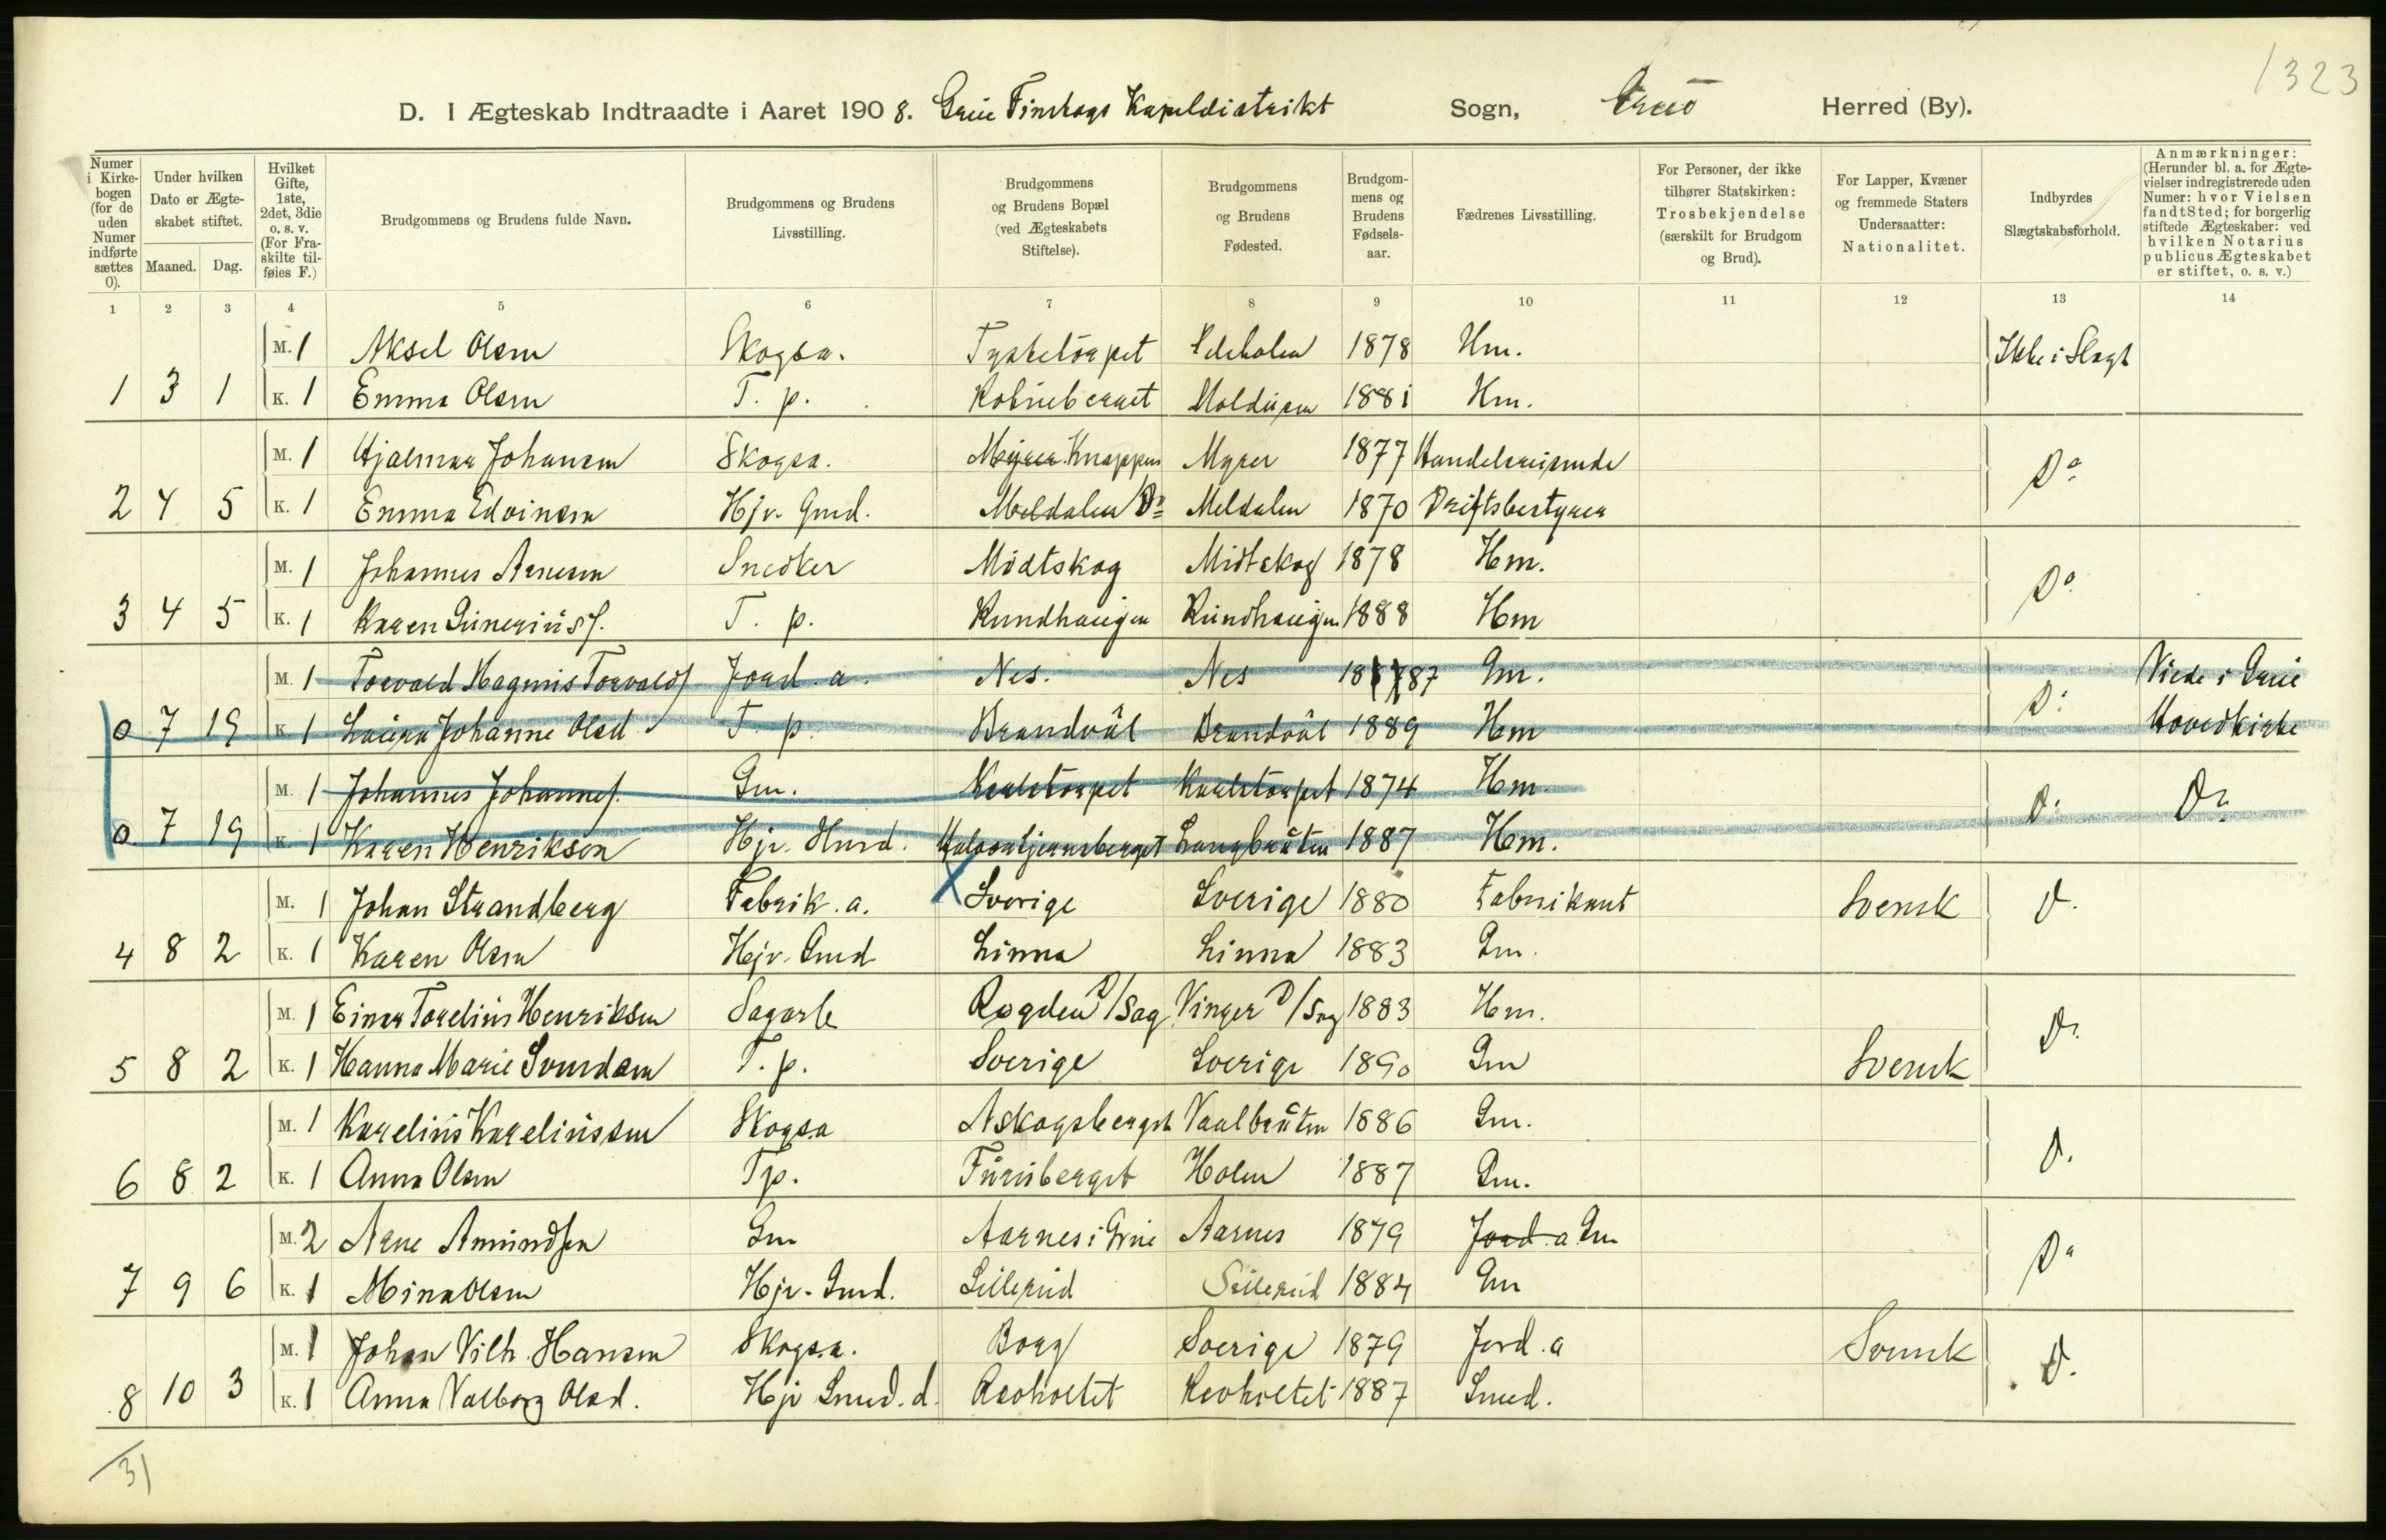 1323
D. I Ægteskab Indtraadte i Aaret 1908. Grue Finskogs Kapeldistrikt Sogn, Grue Herred (By).
Numer i Kirkebogen (for de uden Numer indførte sættes 0).
Under hvilken Dato er Ægteskabet stiftet.
Maaned. Dag.
Hvilket Gifte, 1ste, 2det, 3die o. s. v. (For Fraskilte tilføies F.)
Brudgommens og Brudens fulde Navn.
Brudgommens og Brudens Livsstilling.
Brudgommens og Brudens Bopæl (ved Ægteskabets Stiftelse).
Brudgommens og Brudens Fødested.
Brudgommens og Brudens Fødselsaar.
Fædrenes Livsstilling.
For Personer, der ikke tilhører Statskirken: Trosbekjendelse (særskilt for Brudgom og Brud).
For Lapper, Kvæner og fremmede Staters Undersaatter: Nationalitet.
Indbyrdes Slægtskabsforhold.
Anmærkninger: (Herunder bl. a. for Ægtevielser indregistrerede uden Numer: hvor Vielsen fandt Sted; for borgerlig stiftede Ægteskaber: ved hvilken Notarius publicus Ægteskabet er stiftet, o. s. v.)
1 2 3 4 5 6 7 8 9 10 11 12 13 14
M. 1 Aksel Olsen Skogsa. Tysketorpet 1878 Hm. Ikke i Slegt
1 3 1 K. 1 Emma Olsen T. p. 1881 Hm.
M. 1 Hjalmar Johansen Skogsa. Myrer Knappen Myrer 1877 Handelsreisende Do
2 4 5 K. 1 Emma Edvinsen Hjv. Gmd. Meldalen Do Meldalen 1870 Driftsbestyrer
M. 1 Johannes Arnesen Snedker Midtskog Midtskog 1878 Hm. Do
3 4 5 K. 1 Karen Gunerius f. T. p. Rundhaugen Rundhaugen 1888 Hm
M. 1 Torvald Magnus Torvalds Jord. a. Nes. Nes 1887 Gm. Do Viede i Grue
0 7 19 K. 1 Laura Johanne Olsd. T. p. Brandvål Brandvål 1889 Hm Hovedkirke
M. 1 Johannes Johannes f. Gm. Karlstorpet Karlstorpet 1874 Hm. Do Do
0. 7 19 K. 1 Karen Henriksen Hjv. Hmd. Langbråten 1887 Hm.
M. 1 Johan Strandberg Fabrik. a. X Sverige Sverige 1880 Fabrikant Svensk D.
4 8 2 K. 1 Karen Olsen Hjv. Gmd Linna Linna 1883 Gm.
M. 1 Einar Torelius Henriksen Sagarb Rogden D/Sag Vinger D/Sag 1883 Hm. Do
5 8 2 K. 1 Hanna Marie Svendsen T. p. Sverige Sverige 1890 Gm Svensk
M. 1 Karelius Kareliussen Skogsa Askogsberget Vaalbråten 1886 Gm. D.
6 8 2 K. 1 Anna Olsen T p. Furuberget Holen 1887 Gm.
M. 2 Arne Amundsen Gm Aarnes i Grue Aarnes 1879 Jord. a Gm Do
7 9 6 K. 1 Mina Olsen Hjv. Gmd. Lillerud Lillerud 1884 Gm
M. 1 Johan Vilh. Hansen Skogsa. Borg Sverige 1879 Jord. a Svensk D.
8 10 3 K. 1 Anna Valborg Olsd. Hjv Smed. d. Revholtet Revholtet 1887 Smed.
31